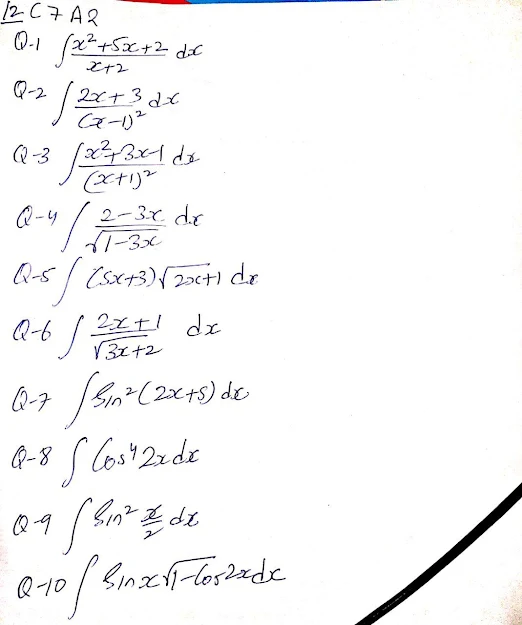 12 C 7 A2
Q-1 ∫ (x²+5x+2)/(x+2) dx
Q-2 ∫ (2x+3)/(x-1)² dx
Q-3 ∫ (x²+3x-1)/(x+1)² dx
Q-4 ∫ (2-3x)/√(1-3x) dx
Q-5 ∫ (5x+3)√(2x+1) dx
Q-6 ∫ (2x+1)/√(3x+2) dx
Q-7 ∫ Sin²(2x+5) dx
Q-8 ∫ Cos⁴2x dx
Q-9 ∫ Sin² x/2 dx
Q-10 ∫ Sinx√(1-Cos2x) dx